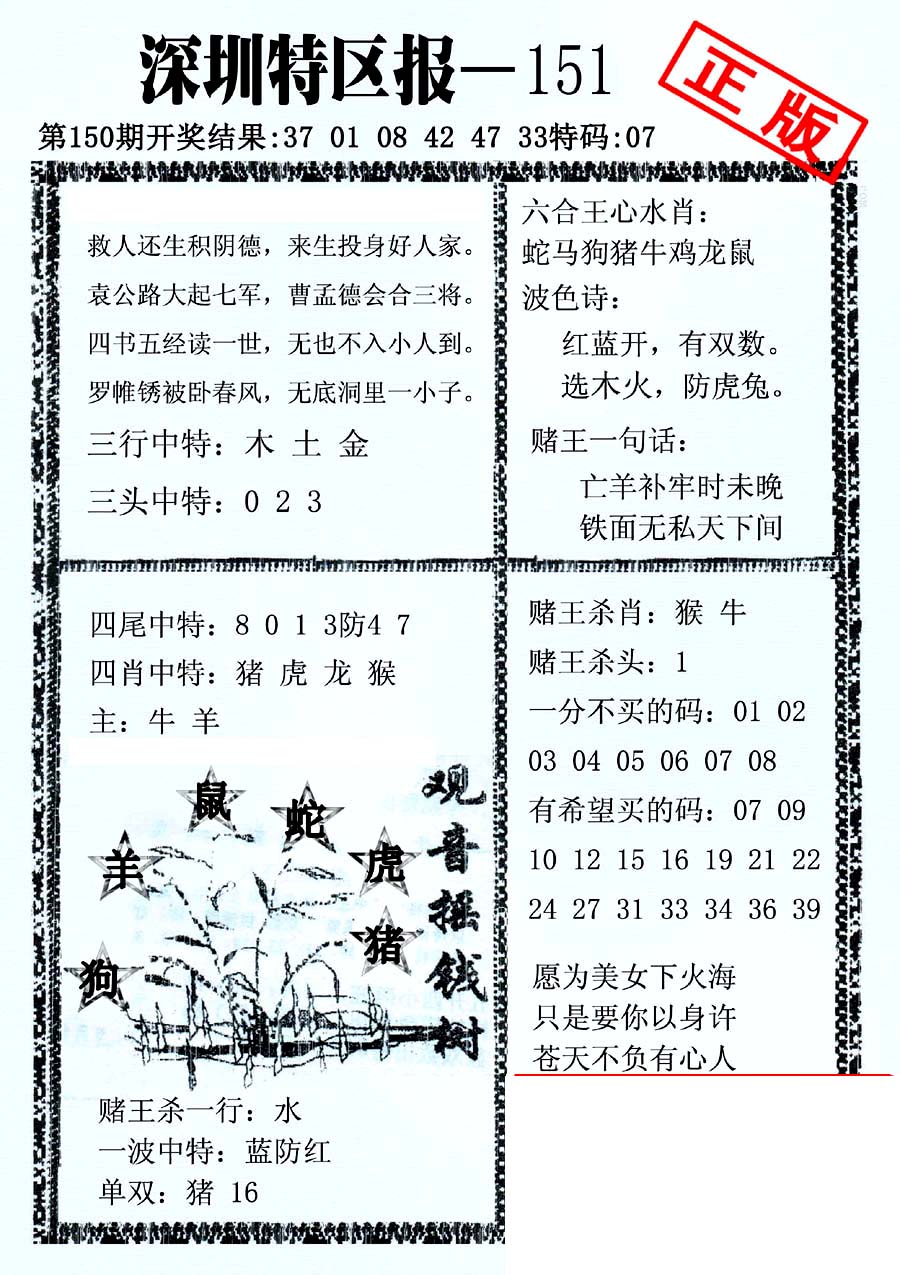 深圳特区报—151
正版
第150期开奖结果:37 01 08 42 47 33特码:07
救人还生积阴德，来生投身好人家。
袁公路大起七军，曹孟德会合三将。
四书五经读一世，无也不入小人到。
罗帷锈被卧春风，无底洞里一小子。
三行中特：木 土 金
三头中特：0 2 3
六合王心水肖：
蛇马狗猪牛鸡龙鼠
波色诗：
红蓝开，有双数。
选木火，防虎兔。
赌王一句话：
亡羊补牢时未晚
铁面无私天下间
四尾中特：8 0 1 3防4 7
四肖中特：猪 虎 龙 猴
主：牛 羊
鼠
蛇
羊
虎
猪
狗
观音摇钱树
赌王杀一行：水
一波中特：蓝防红
单双：猪 16
赌王杀肖：猴 牛
赌王杀头：1
一分不买的码：01 02
03 04 05 06 07 08
有希望买的码：07 09
10 12 15 16 19 21 22
24 27 31 33 34 36 39
愿为美女下火海
只是要你以身许
苍天不负有心人